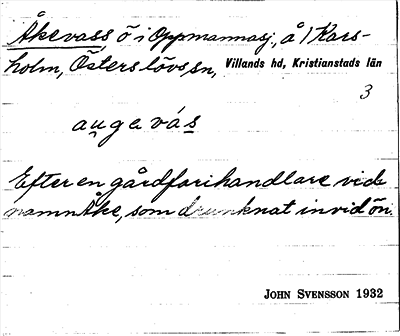 Åkevass ö i Oppmannasj., å 1 Kars-
holm, Österslövs sn, Villands hd, Kristianstads län
3
au̯ge vás
Efter en gårdfarihandlare vid
namn Åke, som drunknat invid ön.
JOHN SVENSSON 1932